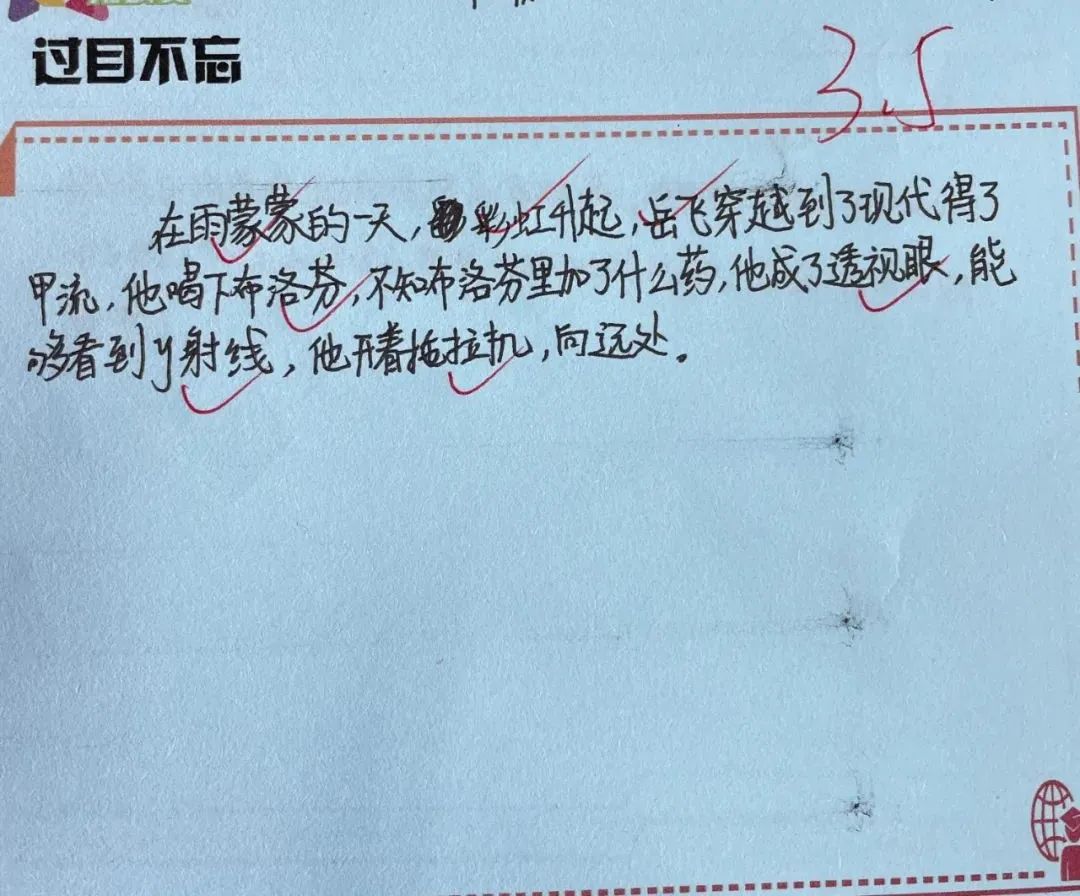 过目不忘
3.5
在雨蒙蒙的一天，彩虹升起，岳飞穿越到了现代得了
甲流，他喝下布洛芬，不知布洛芬里加了什么药，他成了透视眼，能
够看到y射线，他开着拖拉机，向远处。